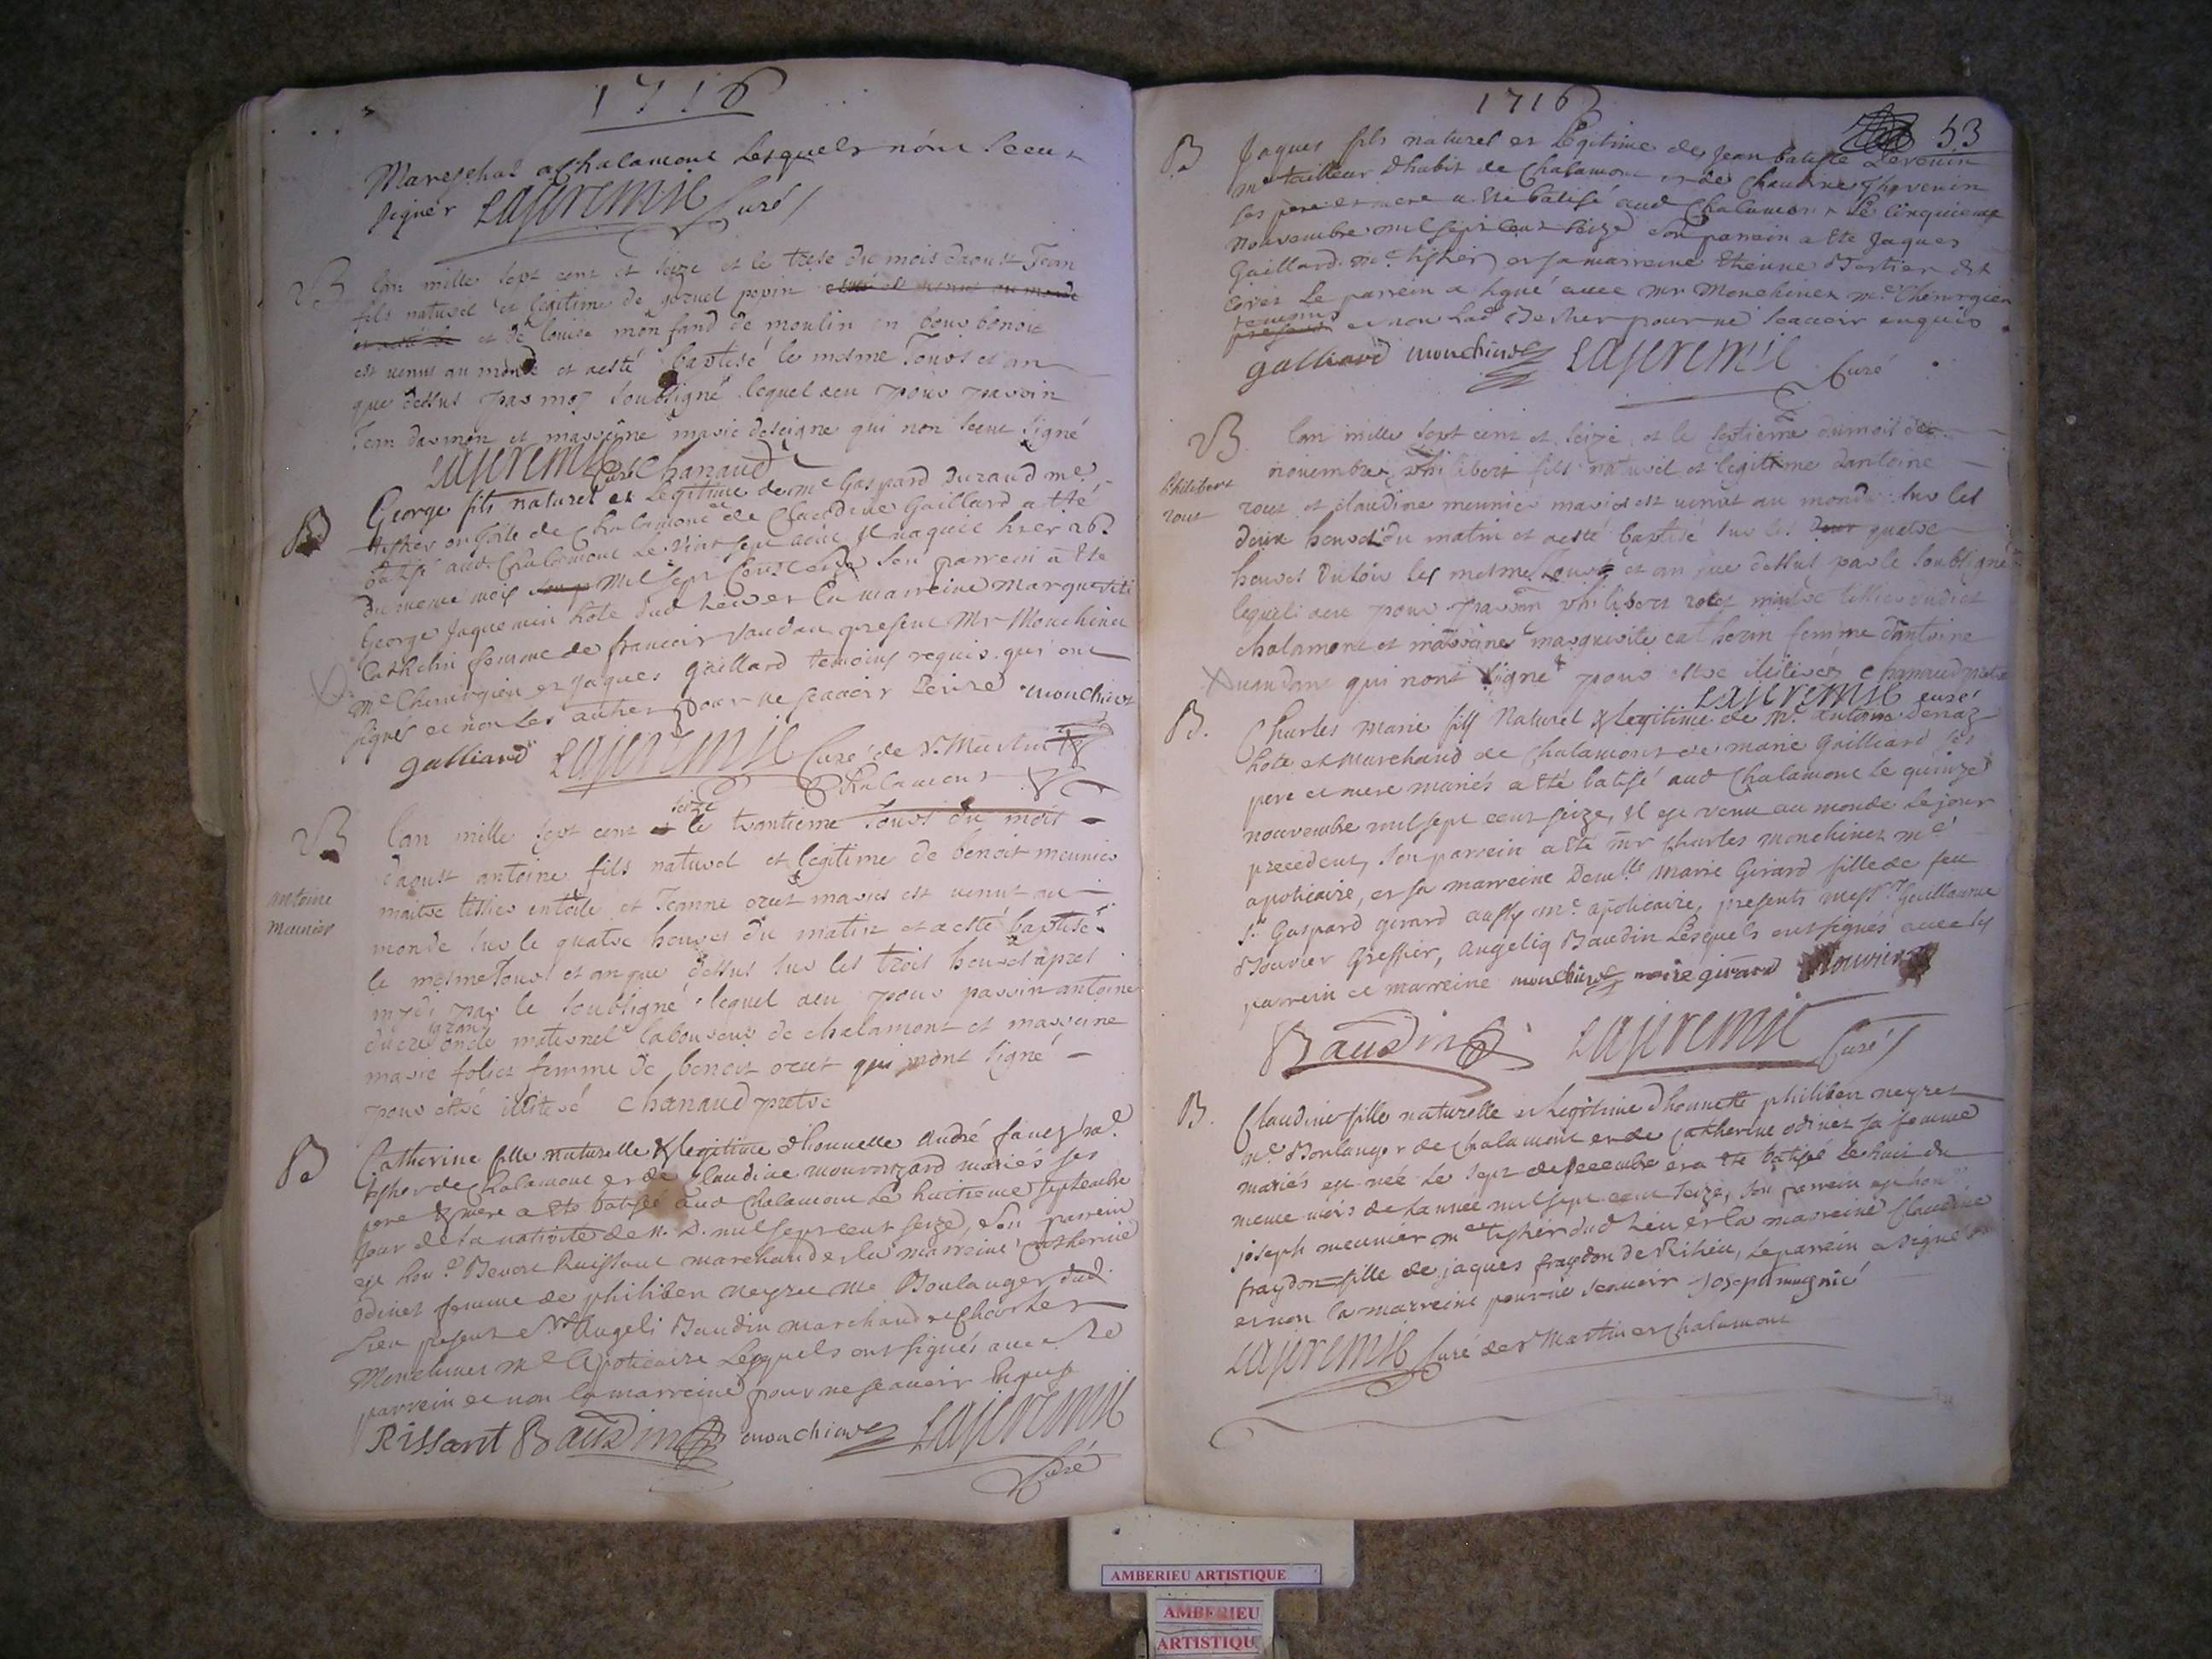 1716
Mareschal a Chalamont Lesquels n'ont sceu
signer Lajeremie Curé
B lan mille sept cent et seize et le trese du mois daoust Jean
fils naturel et legitime de popin
et de louise mon fand de moulin en bour benoit
est venus au monde et aesté baptisé le mesme Jours et an
que dessus par moy soubsigné lequel aeu pour parrin
Jean darmon et marreine marie qui non sceut signé
Lajeremie Curé Chanaud
B George fils naturel et Legitime de me Gaspard Durand me
tissier en toile de Chalamont et de Claudine Gaillard a eté
batisé aud. Chalamont Le vint sept aout Il naquit hier 26
du meme mois mil sept cent seize son parrein a ete
George Jaquemin hote dud Lieu et la marreine Marguerite
Cathelin femme de francois Vaudan present Mr Monchinet
Me Chirurgien et Jaques Gaillard temoins requis qui ont
signés et non les autres pour ne scavoir Ecrire monchinet
galliard Lajeremie Curé de St Martin
Chalamont
B lan mille sept cent seize le trantieme Jours du mois
daoust antoine fils naturel et legitime de benoit meunier
antoine
meunier
maitre tissier entoile et Jeanne orset maries est venut au
monde sur le quatre heures du matin et aesté baptisé
le mesme Jour et an que dessus sur les trois heures apres
midi par le soubsigné lequel aeu pour parrin antoine
oncle maternel laboureur de chalamont et marreine
marie foliet femme de benoit orset qui nont signé
pour estre illiteré Chanaud pretre
B Catherine fille naturelle & legitime dhonnette André
tissier de Chalamont et de Claudine mariés ses
pere & mere a ete batisée aud Chalamont Le huitieme septembre
jour de la nativité de N. D. mil sept cent seize, son parrein
est hon. Benoit Ruissant marchand et la marreine Catherine
odinet femme de philiben neyret me Boulanger dud
Lieu present Sr Angeli Baudin marchand et Charles
Monchinet me Apoticaire Lesquels ont signés avec le
parrein et non la marreine pour ne scavoir Enquise
Rissant Baudin monchinet Lajeremie
Curé
1716
53
B Jaques fils naturel et Legitime de Jean batiste
me tailleur dhabit de Chalamont et de Claudine Thevenin
ses pere et mere a ete batisé aud Chalamont Le cinquieme
nouvembre mil sept cent seize son parrein a ete Jaques
Gaillard me tissier et sa marreine Etienne
Le parrein a signé avec Mr Monchinet me Chirurgien
temoins et non lad pour ne scavoir enquis
galliard monchinet Lajeremie
Curé
B lan mille sept cent et seize et le septieme du mois de
novembre philibert fils naturel et legitime dantoine
Philibert
rout
rout et claudine meunier maries est venut au monde sur les
deux heures du matin et aesté baptisé sur les quatre
heures du soir les mesme Jours et an que dessus par le soubsigné
lequel aeu pour parrin philibert maitre tissier dudict
chalamont et marreine marguerite catherin femme dantoine
vaudant qui nont signé pour estre illiterés Chanaud pretre
Lajeremie curé
B. Charles Marie fils Naturel & legitime de me antoine
hote et Marchand de Chalamont et de marie Gailliard ses
pere et mere mariés a eté batisé aud Chalamont le quinze
nouvembre mil sept cent seize, Il est venu au monde le jour
precedent, son parrein a ete mr Charles monchinet me
apoticaire, et sa marreine Demelle Marie Girard fille de feu
Sr Gaspard girard aussy me apoticaire, presents messr Guillaume
Bouvier Greffier, Angeliq Baudin Lesquels ont signés avec les
parrein et marreine monchinet marie girard Bouvier
Baudin Lajeremie Curé
B. Claudine fille naturelle et Legitime dhonnette philiben neyret
me Boulanger de Chalamont et de Catherine odinet sa femme
mariés est née Le sept de decembre et a ete batisée Le huit du
meme mois de Lannée mil sept cent seize, son parrein est hon
joseph meunier me tissier dud Lieu et la marreine Claudine
fraydon fille de jaques fraydon de Rihieu, Le parrein a signé
et non la marreine pour ne scavoir
Lajeremie Curé de St Martin et Chalamont
AMBERIEU ARTISTIQUE
AMBERIEU
ARTISTIQU